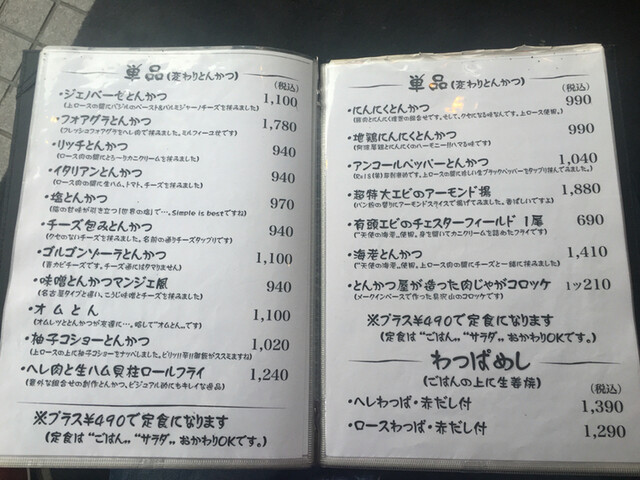 単品(変わりとんかつ)
(税込)
・ジェノベーゼとんかつ 1,100
(上ロースの間にバジルのペースト&パルミジャーノチーズを挟みました)
・フォアグラとんかつ 1,780
(フレッシュフォアグラをヒレ肉で挟みました。ミルフィーユせです)
・リッチとんかつ 940
(ロース肉の間にとろ〜りカニクリームを挟みました)
・イタリアンとんかつ 940
(ロース肉に生ハム、トマト、チーズを挟みました)
・塩とんかつ 970
(脂の甘味が引き立つ「世界の塩」で…、Simple is bestですね)
・チーズ包みとんかつ 940
(クセのないチーズを挟みました。名前の通りチーズタップリです)
・ゴルゴンゾーラとんかつ 1,100
(青カビチーズです。チーズ通にはタマりません)
・味噌とんかつマンジェ風 940
(名古屋タイプと違い、こうじ味噌とチーズを挟みました)
・オムとん 1,100
(オムレツととんかつが友達に…、略して“オムとん„です)
・柚子コショーとんかつ 1,020
(上ロースの上に柚子コショーをナッペしました。ピリッ!!辛!!御飯がススミますね)
・ヘレ肉と生ハム貝柱ロールフライ 1,240
(意外な組合せの創作とんかつ、ビジュアル的にもキレイな逸品)
※プラス¥490で定食になります
(定食は“ごはん„“サラダ„おかわりOKです。)
単品(変わりとんかつ)
(税込)
・にんにくとんかつ 990
・地鶏にんにくとんかつ 990
(阿波尾鶏とにんにくのハーモニー!!ハマる味です)
・アンコールペッパーとんかつ 1,040
・超特大エビのアーモンド揚 1,880
(パン粉の替りにアーモンドスライスで揚げてみました。香ばしいですよ)
・有頭エビのチェスターフィールド 1尾 690
(“天使の海老„使用。身を開いてカニクリームを詰めたフライです)
・海老とんかつ 1,410
(“天使の海老„使用。上ロース肉の間にチーズと一緒に挟みました)
・とんかつ屋が造った肉じゃがコロッケ 1ツ210
(メークインベースで作った具沢山のコロッケです)
※プラス¥490で定食になります
(定食は“ごはん„“サラダ„おかわりOKです。)
わっぱめし
(ごはんの上に生姜焼)
(税込)
・ヘレわっぱ・赤だし付 1,390
・ロースわっぱ・赤だし付 1,290